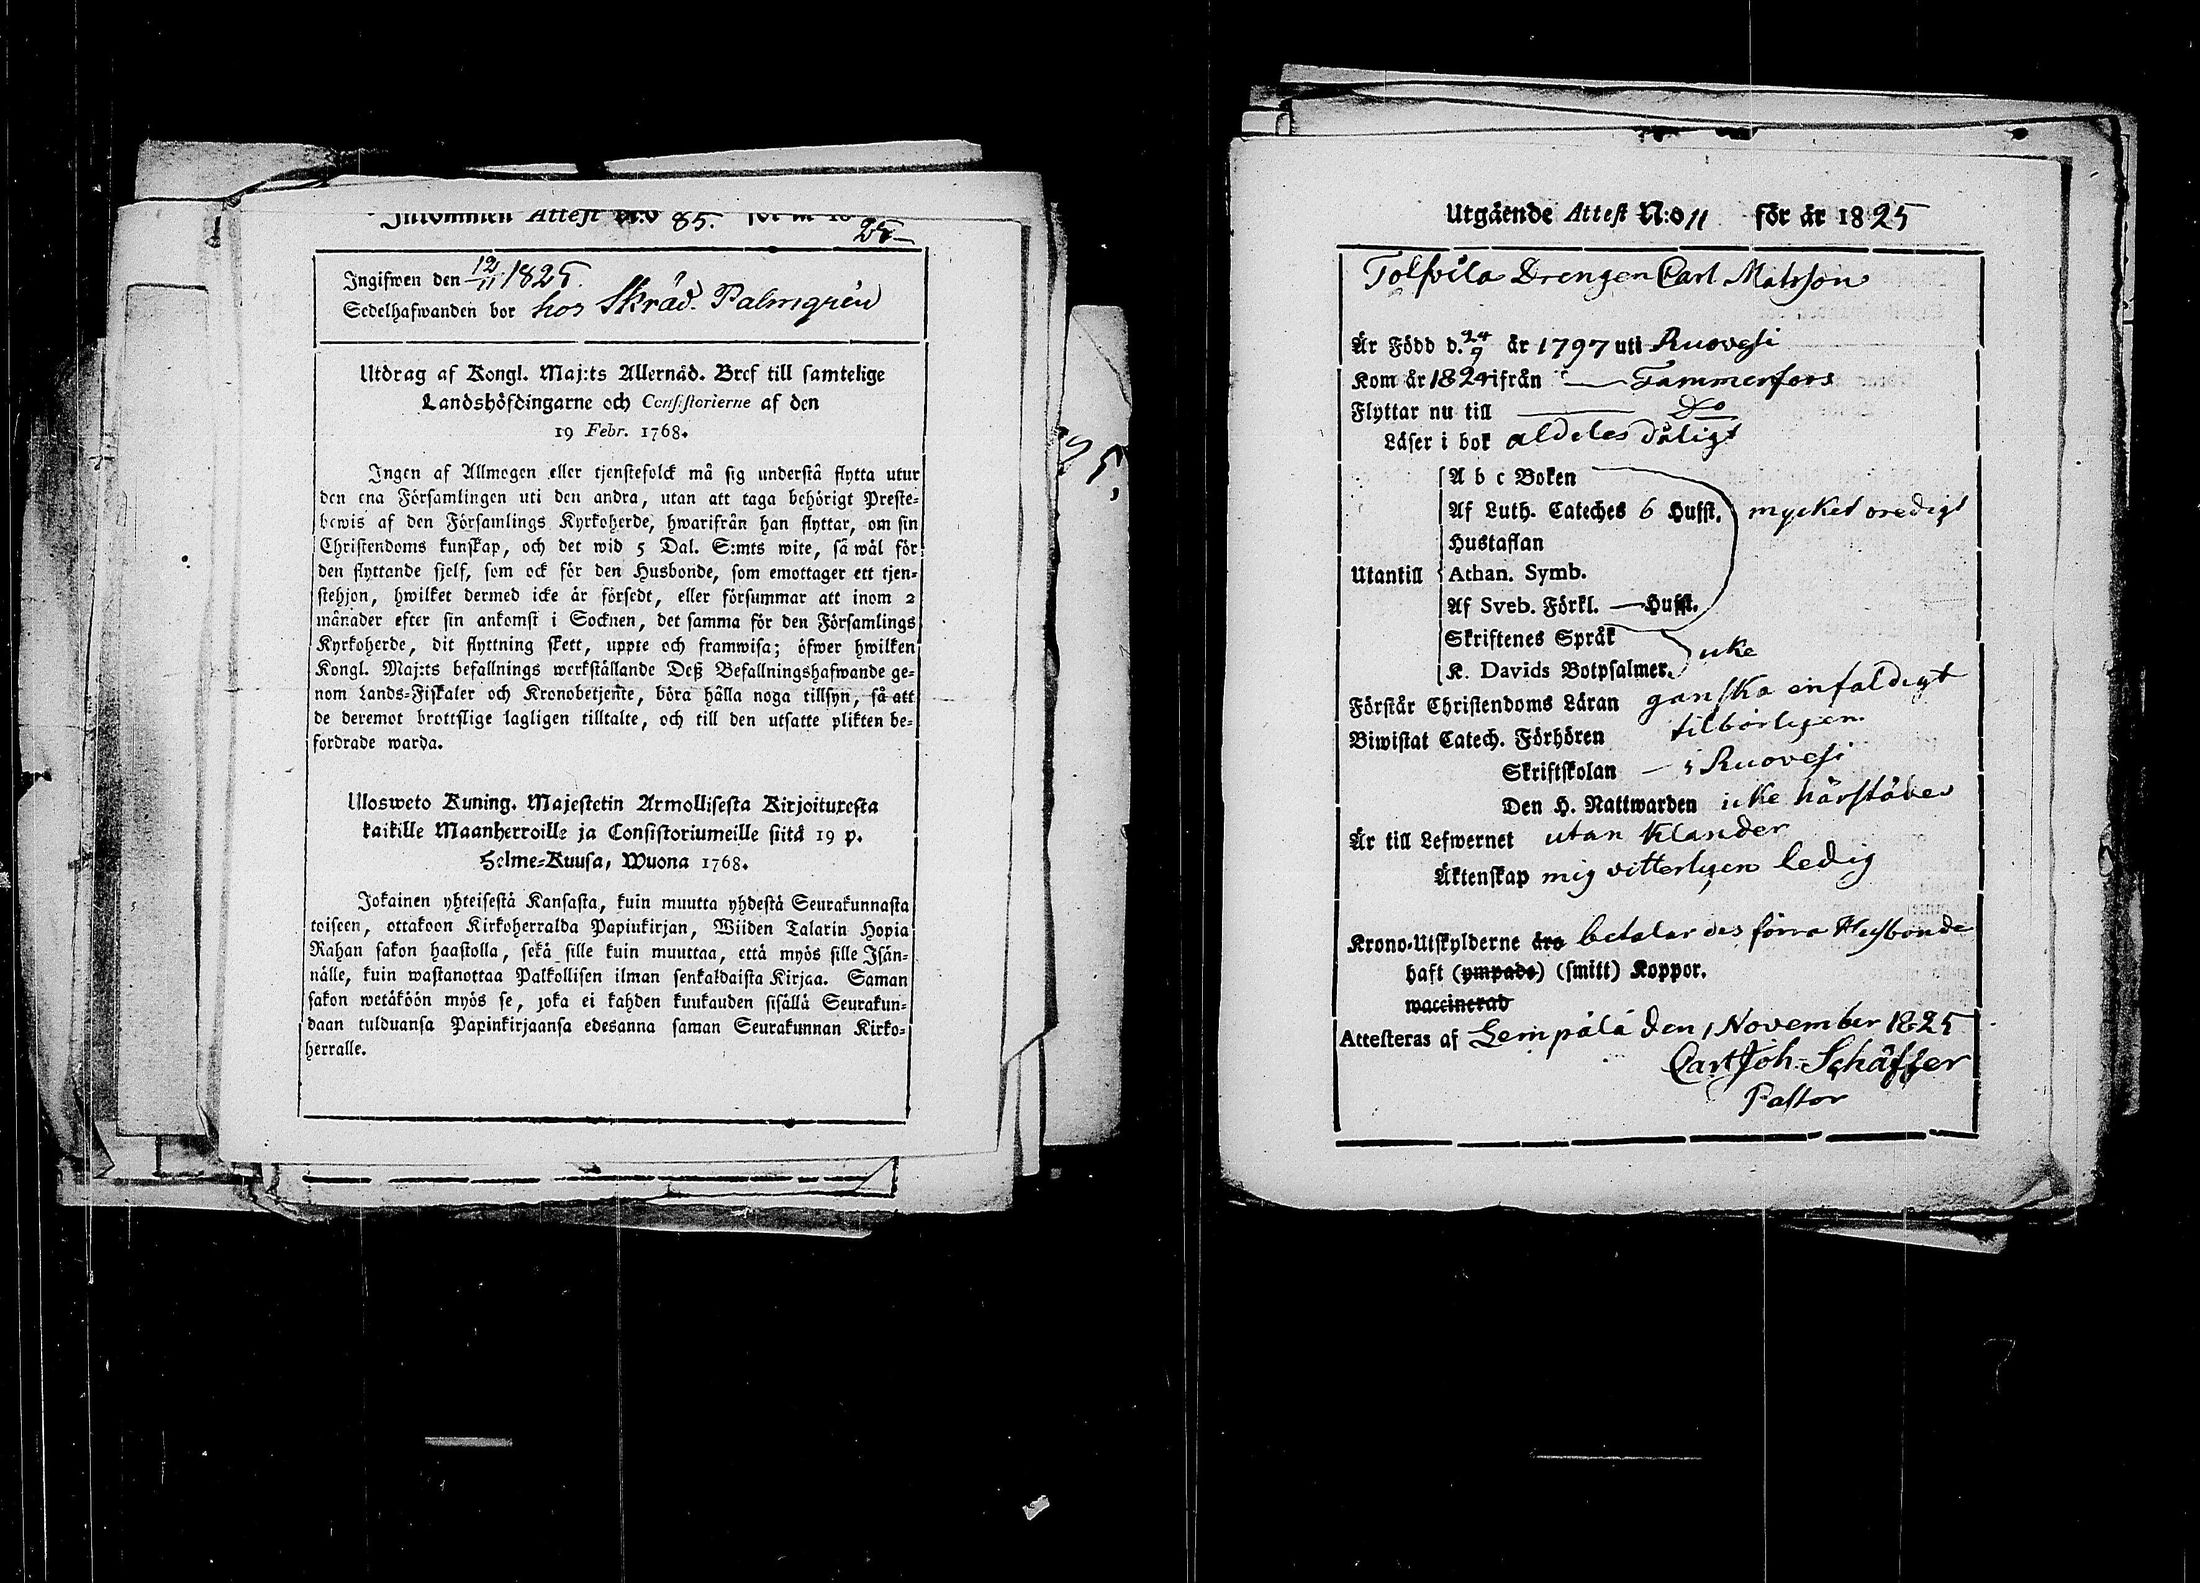 Inkommen Attest N:o 85. för år 18
25
Ingifwen den 12/11 1825.
Sedelhafwanden bor hos Skräd. Palmgrén
Utdrag af Kongl. Maj:ts Allernåd. Bref till samtelige
Landshöfdingarne och Consistorierne af den
19 Febr. 1768.
Ingen af Allmogen eller tjenstefolck må sig understå flytta utur
den ena Församlingen uti den andra, utan att taga behörigt Preste-
bewis af den Församlings Kyrkoherde, hwarifrån han flyttar, om sin
Christendoms kunskap, och det wid 5 Dal. S:mts wite, så wäl för
den flyttande sjelf, som ock för den Husbonde, som emottager ett tjen-
stehjon, hwilket dermed icke är försedt, eller försummar att inom 2
månader efter sin ankomst i Socknen, det samma för den Församlings
Kyrkoherde, dit flyttning skett, uppte och framwisa; öfwer hwilken
Kongl. Maj:ts befallnings werkställande Deß Befallningshafwande ge-
nom Lands-Fiskaler och Kronobetjente, böra hålla noga tillsyn, så att
de deremot brottslige lagligen tilltalte, och till den utsatte plikten be-
fordrade warda.
Ulosweto Kuning. Majestetin Armollisesta Kirjoituxesta
kaikille Maanherroille ja Consistoriumeille siitä 19 p.
Helme-Kuusa, Wuona 1768.
Jokainen yhteisestä Kansasta, kuin muutta yhdestä Seurakunnasta
toiseen, ottakoon Kirkoherralda Papinkirjan, Wiiden Talarin Hopia
Rahan sakon haastolla, sekä sille kuin muuttaa, että myös sille Isän-
nälle, kuin wastanottaa Palkollisen ilman senkaldaista Kirjaa. Saman
sakon wetäköön myös se, joka ei kahden kuukauden sisällä Seurakun-
daan tulduansa Papinkirjaansa edesanna saman Seurakunnan Kirko-
herralle.
25,
Utgående Attest N:o 11 för år 1825
Tolfvila Drengen Carl Matsson
Är Född d. 24/9 år 1797 uti Ruovesi
Kom år 1824 ifrån — Tammerfors
Flyttar nu till — Do
Läser i bok aldeles dåligt
A b c Boken
Af Luth. Cateches 6 Hufst. mycket oredigt
Hustaflan
Utantill Athan. Symb.
Af Sveb. Förkl. — Hufst.
Skriftenes Språk
K. Davids Botpsalmer. icke
Förstår Christendoms Läran ganska enfaldigt
Biwistat Catech. Förhören tilbörligen
Skriftskolan — i Ruovesi
Den H. Nattwarden icke härstädes
Är till Lefwernet utan klander
Äktenskap mig vitterligen ledig
Krono-Utskylderne äro betalar des förra Husbonde
haft (ympade) (smitt) Koppor.
waccinerad
Attesteras af Lempälä den 1 November 1825
Carl Joh. Schäffer
Pastor